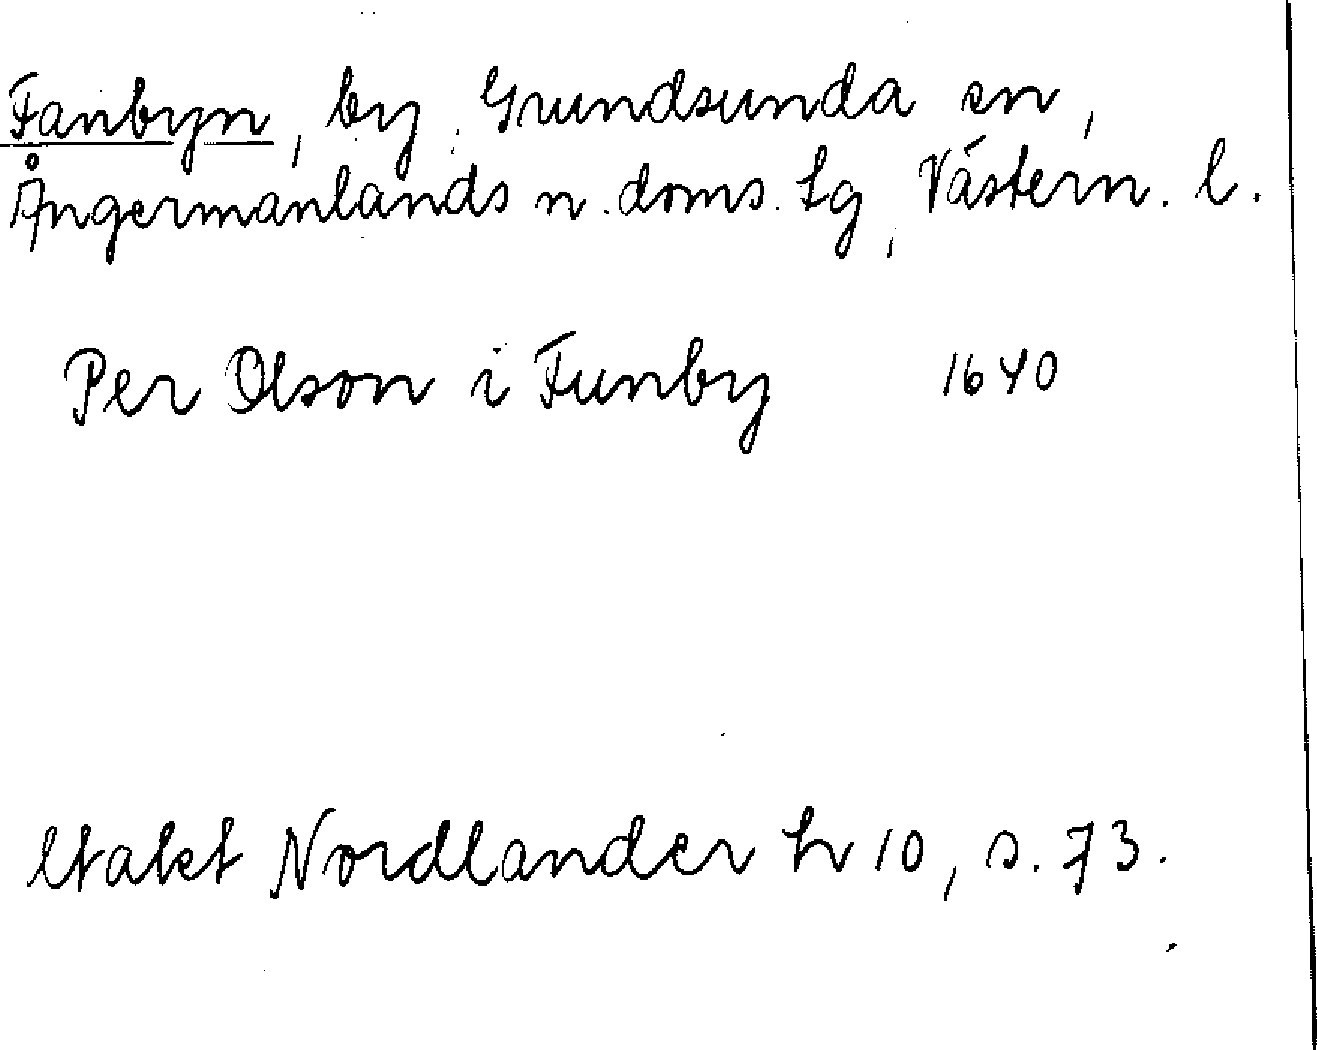 Fanbyn, by, Grundsunda sn,
Ångermanlands n. doms. lg, Västern. l.
Per Olson i Funby 1640
Utakt Nordlander h 10, s. 73.